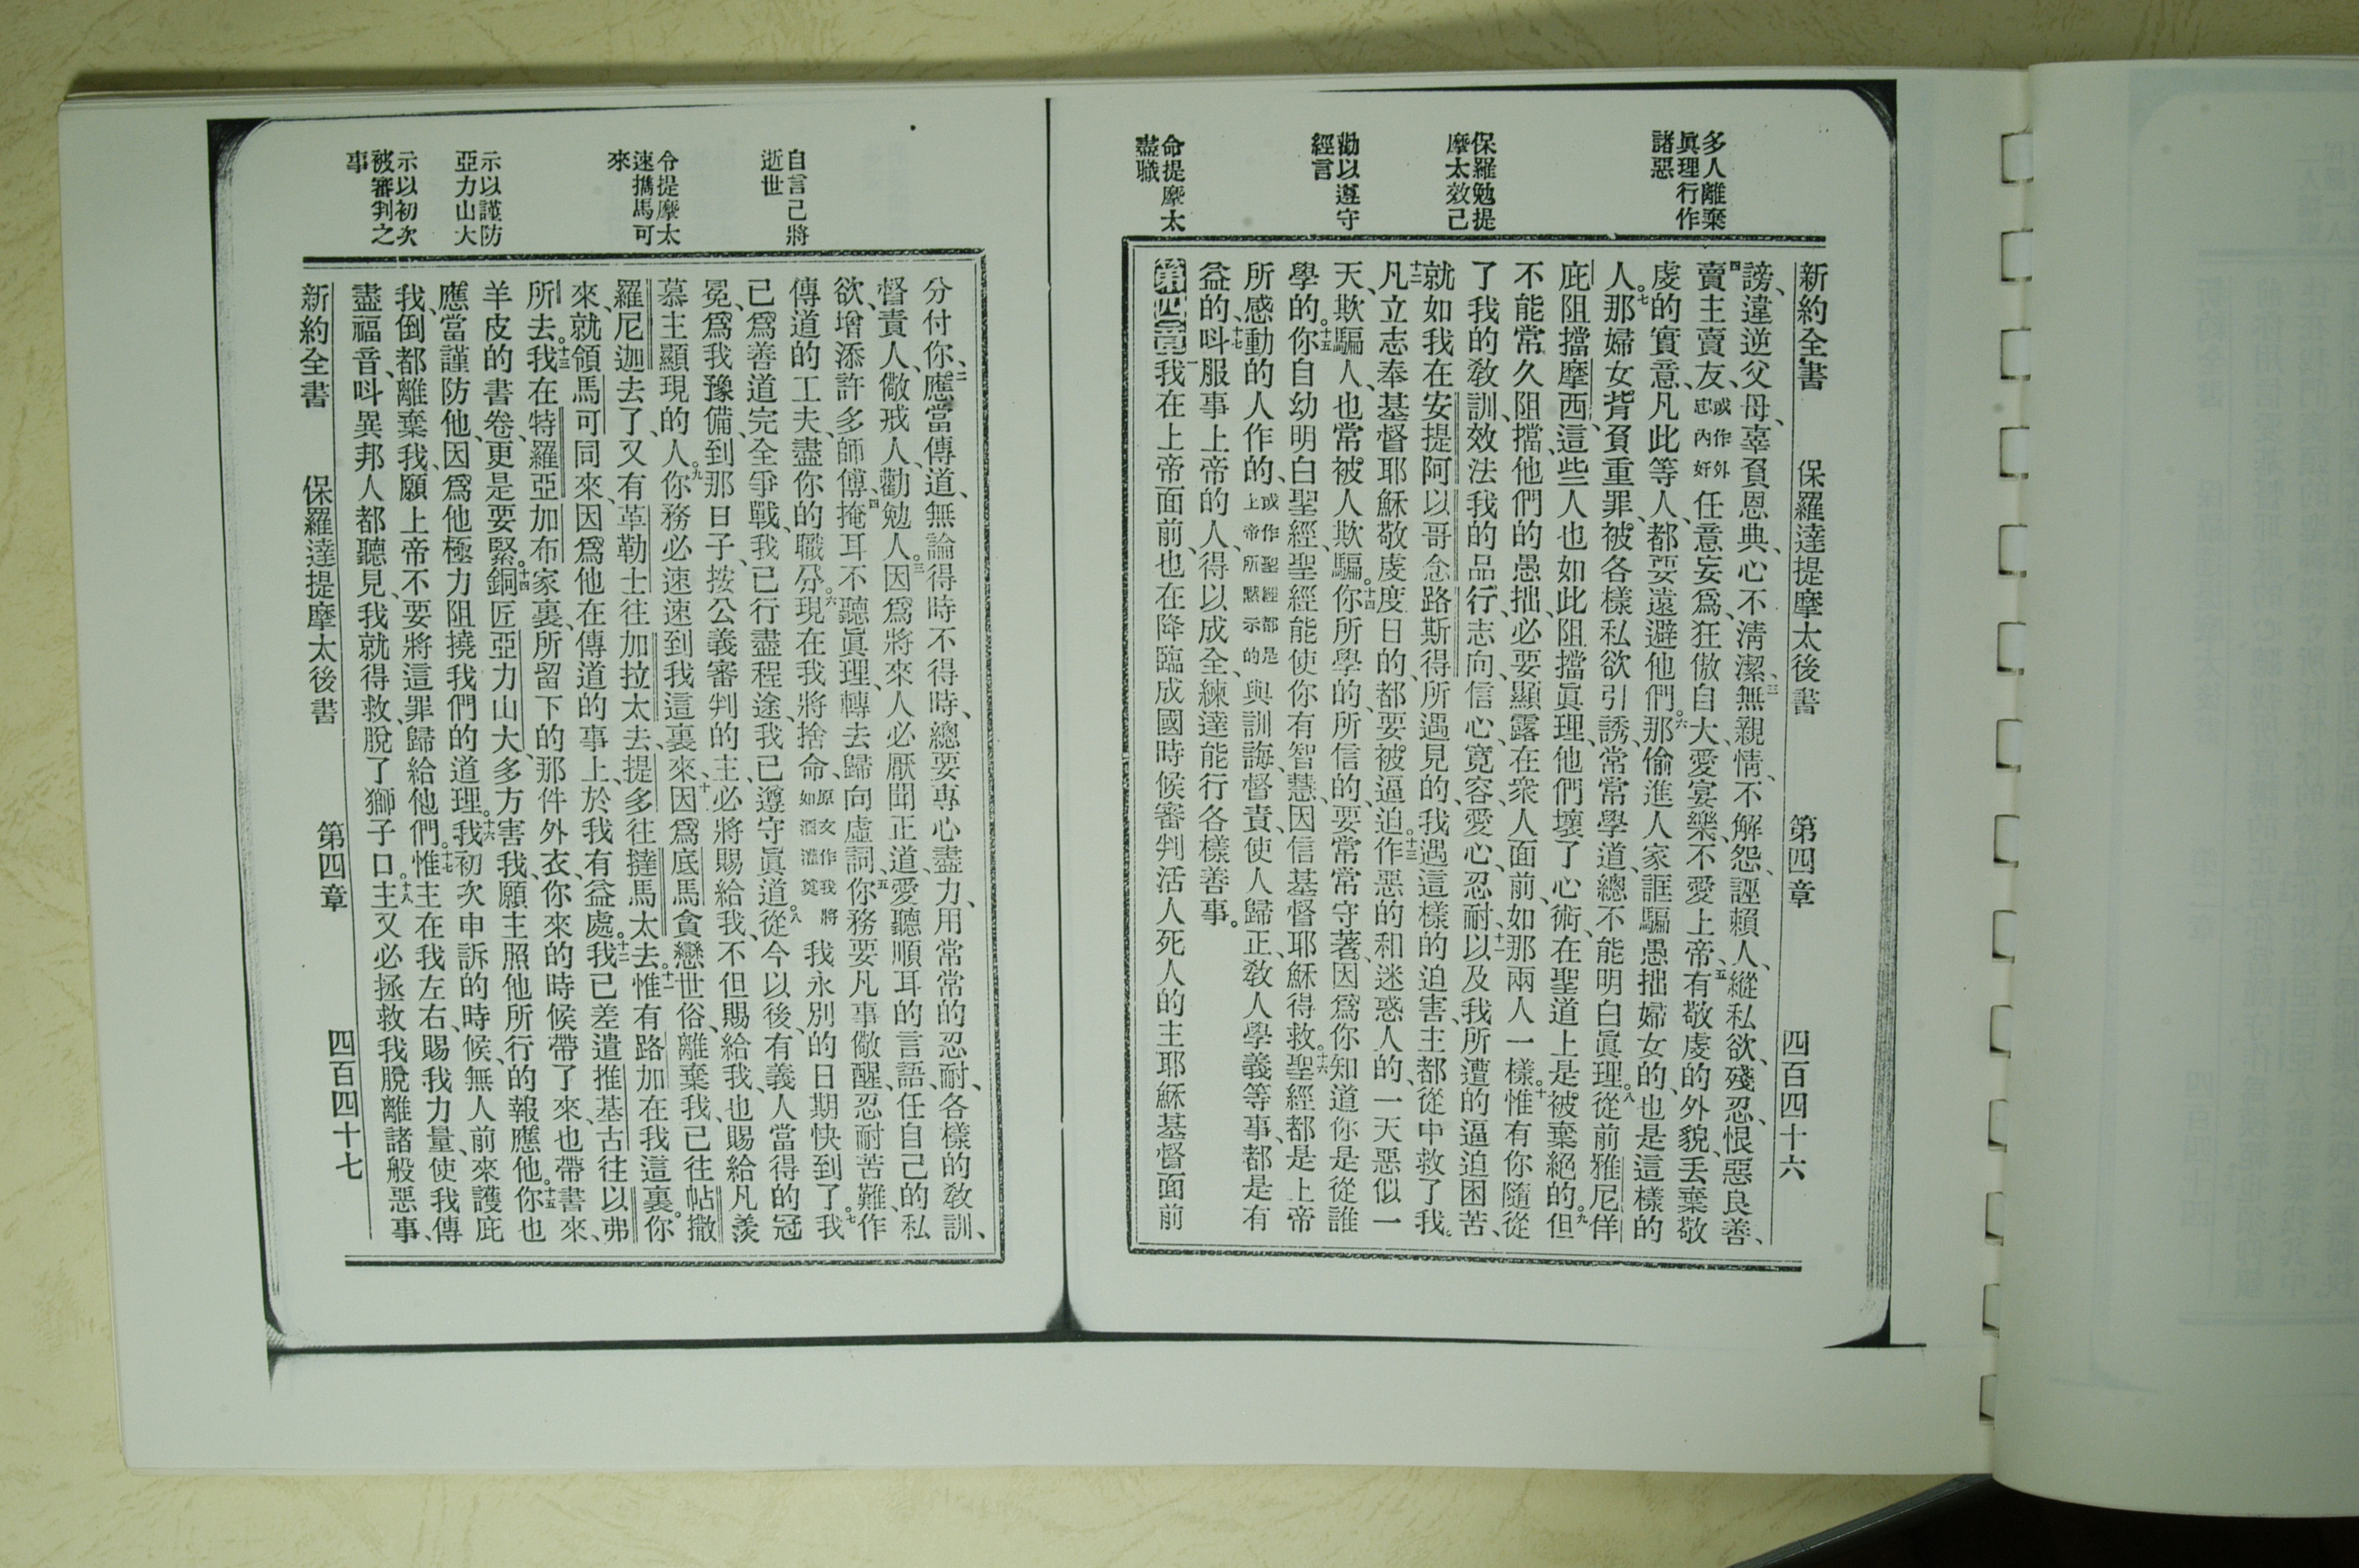 多人離棄
眞理行作
諸惡
保羅勉提
摩太效己
勸以遵守
經言
命提摩太
盡職
新約全書 保羅達提摩太後書 第四章 四百四十六
謗、違逆父母、辜負恩典、心不清潔、三無親情、不解怨、誣賴人、縱私欲、殘忍、恨惡良善、
四賣主賣友、或作外忠內奸任意妄爲、狂傲自大、愛宴樂、不愛上帝、五有敬虔的外貌、丟棄敬
虔的實意、凡此等人、都要遠避他們。六那偷進人家、誆騙愚拙婦女的、也是這樣的
人。七那婦女背負重罪、被各樣私欲引誘、常常學道、總不能明白眞理。八從前雅尼佯
庇阻擋摩西、這些人也如此阻擋眞理、他們壞了心術、在聖道上是被棄絕的。九但
不能常久阻擋、他們的愚拙、必要顯露在衆人面前、如那兩人一樣。十惟有你隨從
了我的敎訓、效法我的品行、志向、信心、寬容、愛心、忍耐、十一以及我所遭的逼迫困苦、
就如我在安提阿以哥念路斯得所遇見的、我遇這樣的迫害、主都從中救了我。
十二凡立志奉基督耶穌敬虔度日的、都要被逼迫。十三作惡的和迷惑人的、一天惡似一
天、欺騙人、也常被人欺騙。十四你所學的、所信的、要常常守著、因爲你知道你是從誰
學的。十五你自幼明白聖經、聖經能使你有智慧、因信基督耶穌得救。十六聖經都是上帝
所感動的人作的、或作聖經都是上帝所默示的與訓誨、督責、使人歸正、敎人學義等事、都是有
益的、十七呌服事上帝的人、得以成全、練達能行各樣善事。
第四章一我在上帝面前、也在降臨成國時候審判活人死人的主耶穌基督面前
自言己將
逝世
令提摩太
速攜馬可
來
示以謹防
亞力山大
示以初次
被審判之
事
分付你、二應當傳道、無論得時不得時、總要專心盡力、用常常的忍耐、各樣的敎訓、
督責人、儆戒人、勸勉人。三因爲將來人必厭聞正道、愛聽順耳的言語、任自己的私
欲、增添許多師傅、四掩耳不聽眞理、轉去歸向虛詞、五你務要凡事儆醒、忍耐苦難、作
傳道的工夫、盡你的職分。六現在我將捨命、原文作我將如酒灌奠我永別的日期快到了。七我
已爲善道完全爭戰、我已行盡程途、我已遵守眞道。八從今以後、有義人當得的冠
冕、爲我豫備、到那日子、按公義審判的主、必將賜給我、不但賜給我、也賜給凡羨
慕主顯現的人。九你務必速速到我這裏來、十因爲底馬貪戀世俗、離棄我、已往帖撒
羅尼迦去了、又有革勒士往加拉太去、提多往撻馬太去。十一惟有路加在我這裏。你
來、就領馬可同來、因爲他在傳道的事上、於我有益處。十二我已差遣推基古往以弗
所去。十三我在特羅亞加布家裏、所留下的那件外衣、你來的時候帶了來、也帶書來、
羊皮的書卷、更是要緊。十四銅匠亞力山大、多方害我、願主照他所行的報應他。十五你也
應當謹防他、因爲他極力阻撓我們的道理。十六我初次申訴的時候、無人前來護庇
我、倒都離棄我、願上帝不要將這罪歸給他們。十七惟主在我左右、賜我力量、使我傳
盡福音、呌異邦人都聽見、我就得救、脫了獅子口。十八主又必拯救我脫離諸般惡事、
新約全書 保羅達提摩太後書 第四章 四百四十七